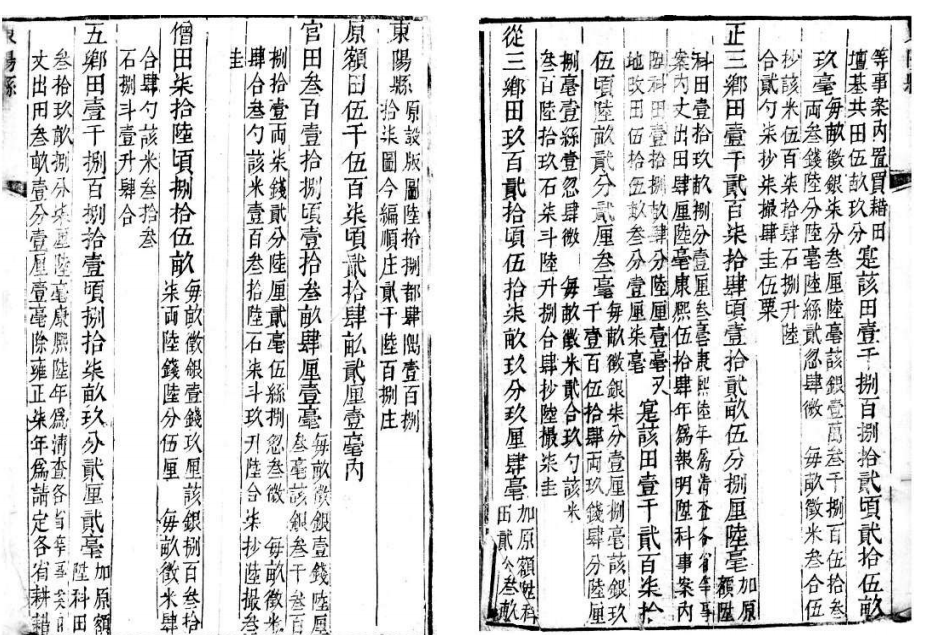 東陽縣 原設版圖陸拾捌都肆隅壹百捌
拾柒圖今編順庄貳千陸百捌庄
原額田伍千伍百柒頃貳拾肆畝貳厘壹毫内
官田叁百壹拾捌頃壹拾叁畝肆厘壹毫 每畝徵銀壹錢陸厘
叁毫該銀叁千叁百
捌拾壹兩柒錢貳分陸厘貳毫伍絲捌忽叁微 每畝徵米
肆合叁勺該米壹百叁拾陸石柒斗玖升陸合柒抄陸撮叁
圭
僧田柒拾陸頃捌拾伍畝 每畝徵銀壹錢玖厘該銀捌百叁拾
柒兩陸錢陸分伍厘 每畝徵米肆
合肆勺該米叁拾叁
石捌斗壹升肆合
五鄉田壹千捌百捌拾壹頃捌拾柒畝玖分貳厘貳毫 加原額
陞科田
叁拾玖畝捌分柒厘陸毫康熙陸年爲清查各省等事案内
丈出田叁畝壹分壹厘壹毫雍正柒年爲請定各省耕耤
等事案内置買耤田
壇基共田伍畝玖分 寔該田壹千捌百捌拾貳頃貳拾伍畝
玖毫 每畝徵銀柒分叁厘陸毫該銀壹萬叁千捌百伍拾叁
兩叁錢陸分陸毫陸絲貳忽肆微 每畝徵米叁合伍
抄該米伍百柒拾肆石捌升陸
合貳勺柒抄柒撮肆圭伍粟
正三鄉田壹千貳百柒拾肆頃壹拾貳畝伍分捌厘陸毫 加原
額陞
科田壹拾玖畝捌分壹厘叁毫康熙陸年爲清查各省等事
案内丈出田肆厘陸毫康熙伍拾肆年爲報明陞科事案内
陞科田壹拾捌畝肆分陸厘壹毫又
地改田伍拾伍畝叁分壹厘柒毫 寔該田壹千貳百柒拾
伍頃陸畝貳分貳厘叁毫 每畝徵銀柒分壹厘捌毫該銀玖
千壹百伍拾肆兩玖錢肆分陸厘
捌毫壹絲壹忽肆微 每畝徵米貳合玖勺該米
叁百陸拾玖石柒斗陸升捌合肆抄陸撮柒圭
從三鄉田玖百貳拾頃伍拾柒畝玖分玖厘肆毫 加原額陞科
田貳分叁畝